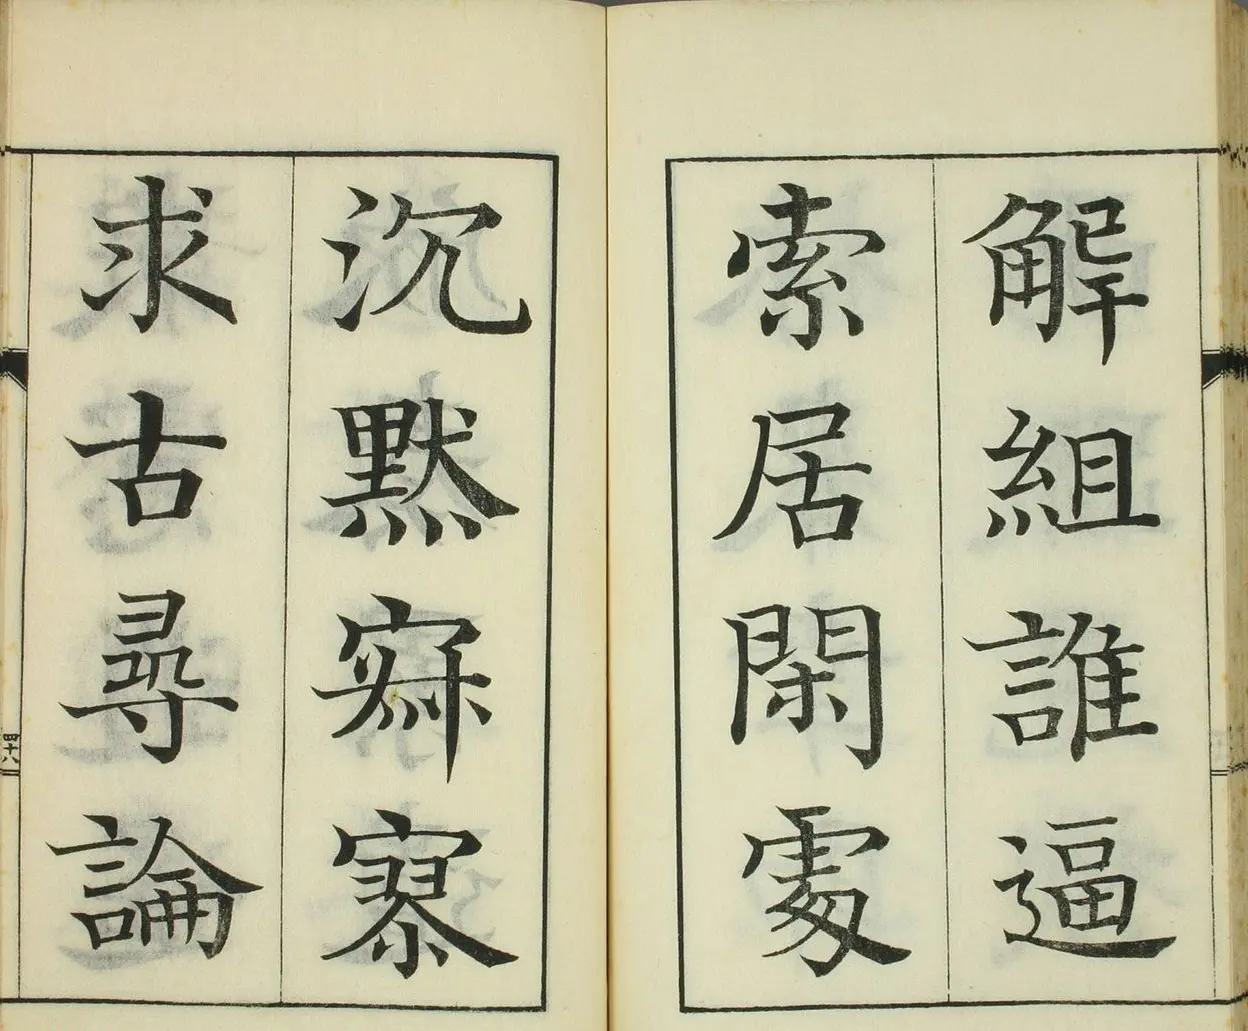 解組誰逼
索居閑處
沉默寂寥
求古尋論
四十八